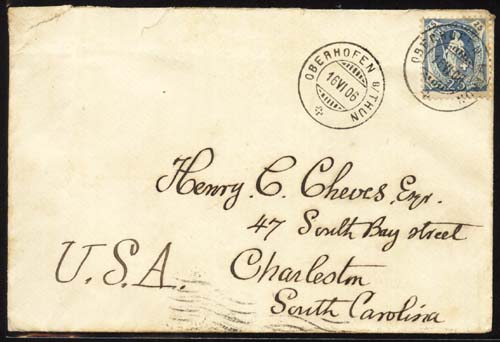 OBERHOFEN B/THUN
16 VI 06
25 25
OBERHOFEN
25
Henry. C. Cheves, Esqr.
47 South Bay street
U.S.A.
Charleston
South Carolina